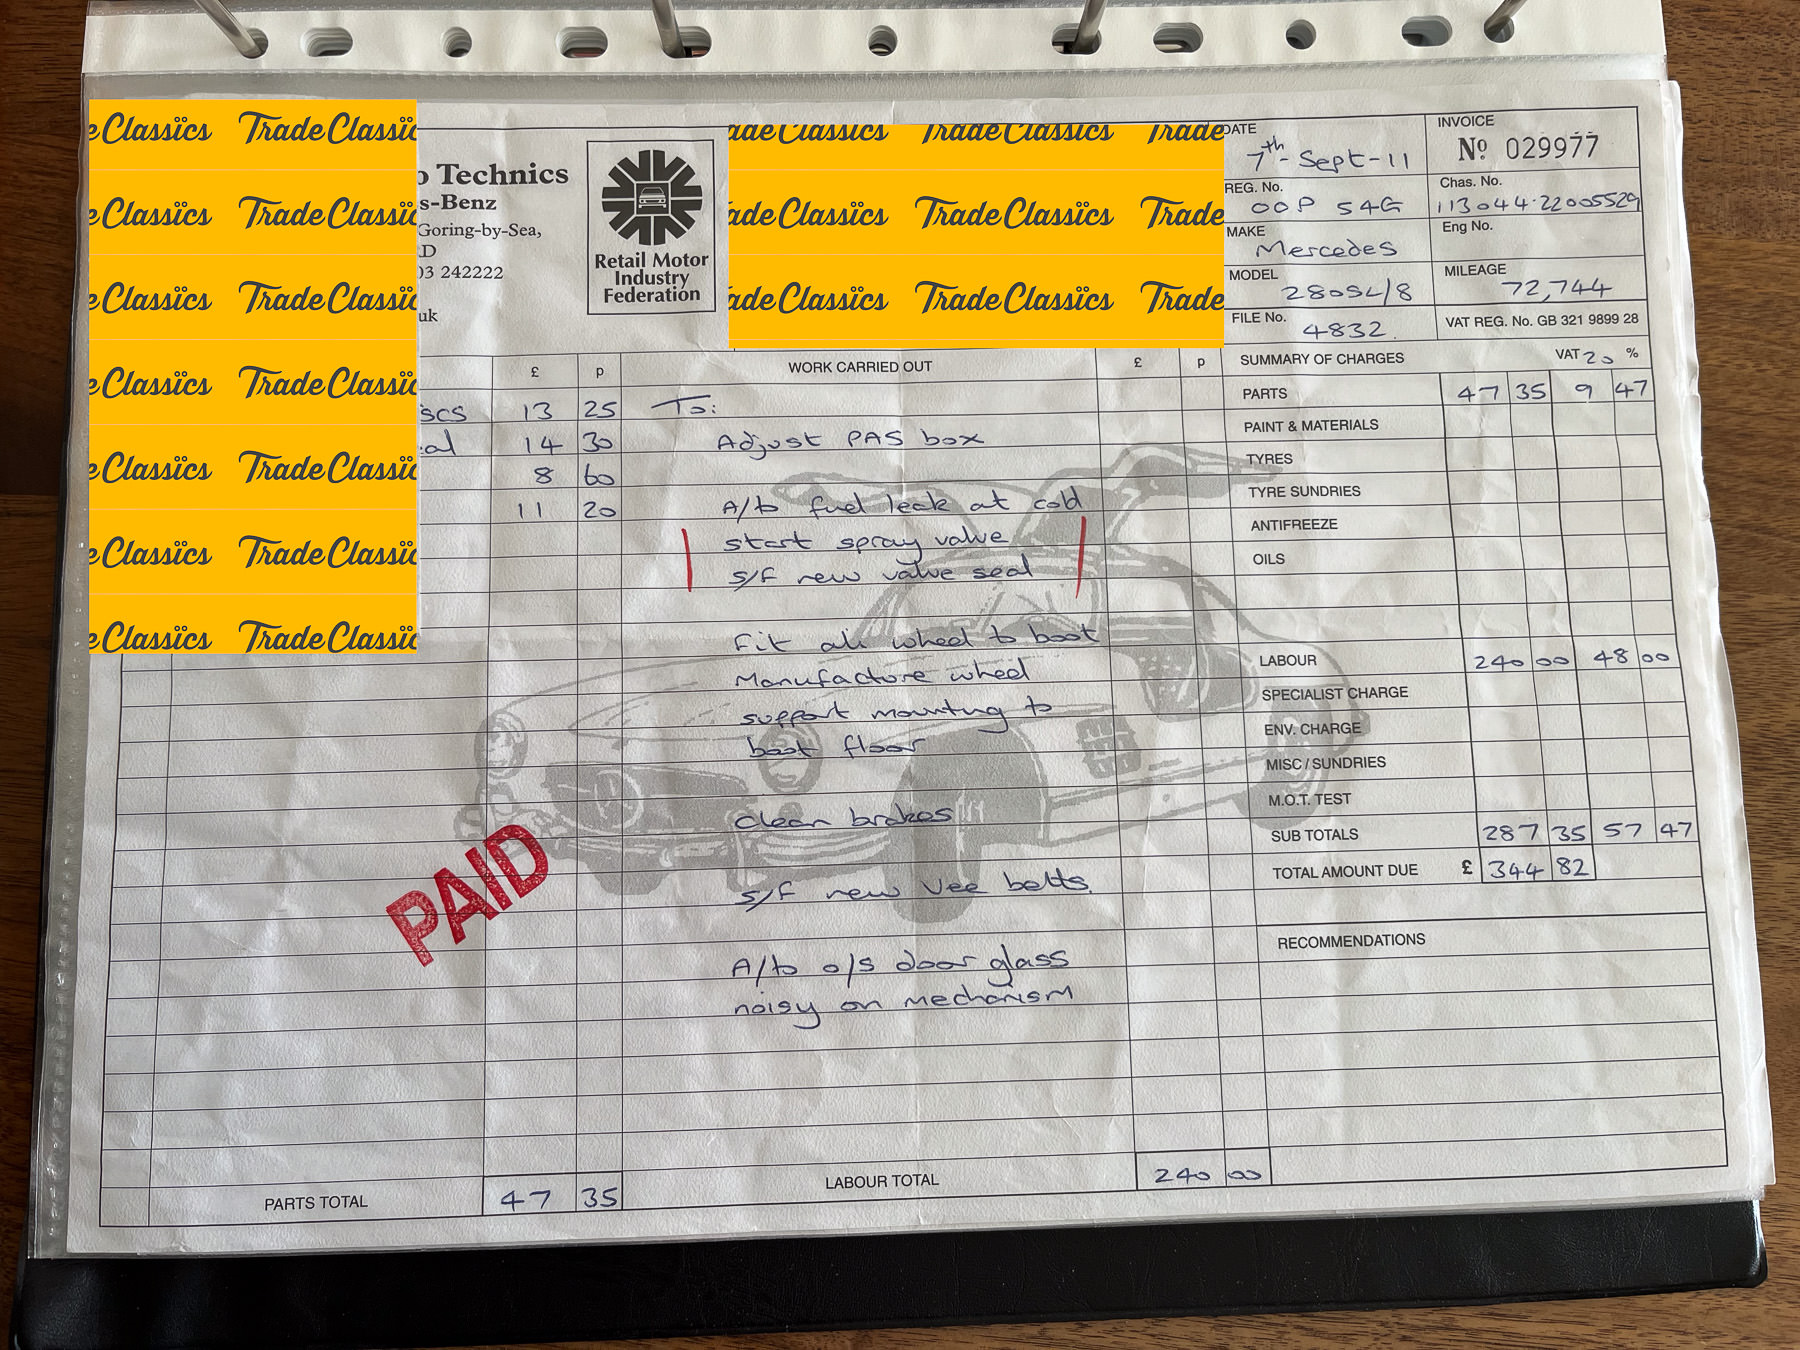 e Classics Trade Classic
o Technics
s-Benz
Goring-by-Sea,
D
03 242222
uk
Retail Motor
Industry
Federation
ade Classics Trade Classics Trade
DATE
7th-Sept-11
INVOICE
Nº 029977
REG. No.
OOP 54G
Chas. No.
113044-22005529
MAKE
Mercedes
Eng No.
MODEL
280SL/8
MILEAGE
72,744
FILE No.
4832.
VAT REG. No. GB 321 9899 28
£ p
WORK CARRIED OUT
£ p
SUMMARY OF CHARGES VAT 20 %
scs 13 25
al 14 30
8 60
11 20
To:
Adjust PAS box
A/to fuel leak at cold
start spray valve
S/F new valve seal
Fit ali wheel to boot
Manufacture wheel
support mounting to
boot floor
clean brakes
S/F new Vee belts.
A/to o/s door glass
noisy on mechanism
PARTS 47 35 9 47
PAINT & MATERIALS
TYRES
TYRE SUNDRIES
ANTIFREEZE
OILS
LABOUR 240 00 48 00
SPECIALIST CHARGE
ENV. CHARGE
MISC / SUNDRIES
M.O.T. TEST
SUB TOTALS 287 35 57 47
TOTAL AMOUNT DUE £ 344 82
RECOMMENDATIONS
PAID
PARTS TOTAL 47 35
LABOUR TOTAL 240 00